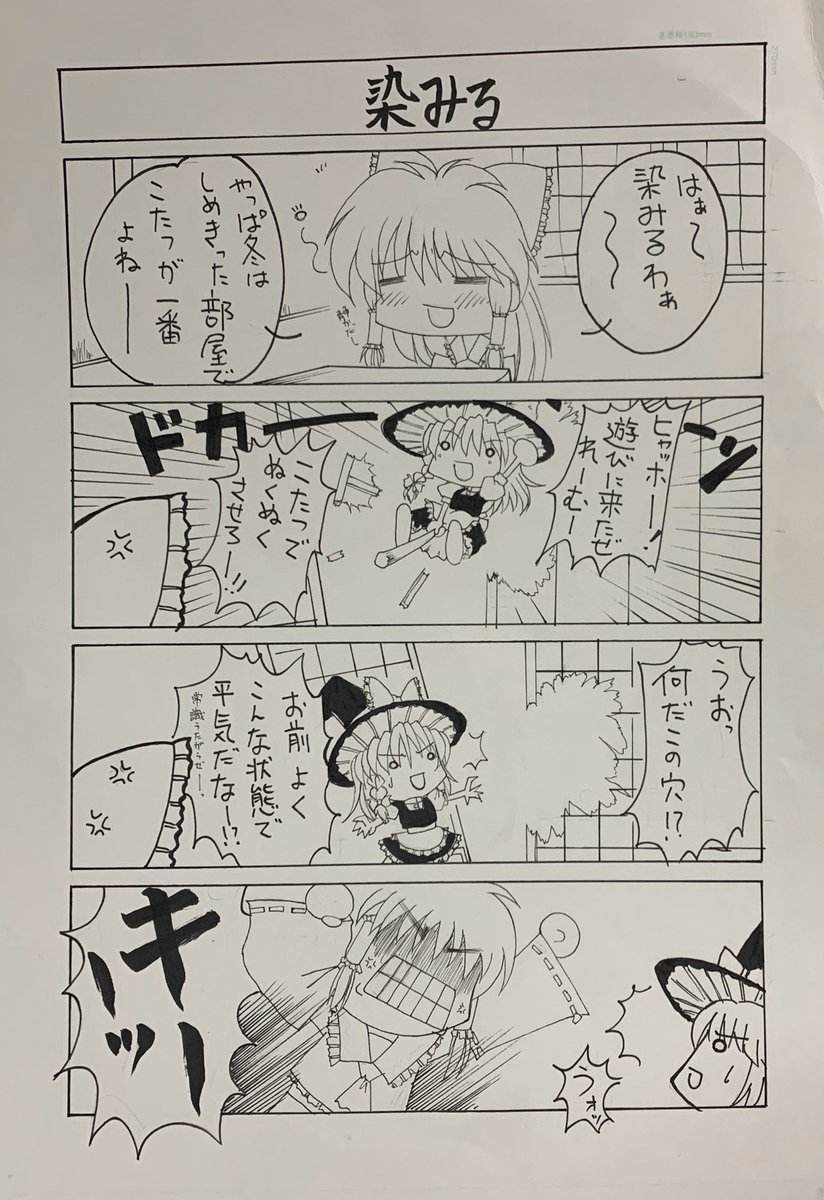 染みる
はぁ〜
染みるわぁ
〜〜
やっぱ冬は
しめきった部屋で
こたつが一番
よねー
ドカーーン
ヒャッホー!
遊びに来たぜ
れーむー
こたつで
ぬくぬく
させろー!!
うおっ
何だこの穴!?
お前 よく
こんな状態で
平気だなー!?
常識うたがうぜー、
キーッ
うォッ